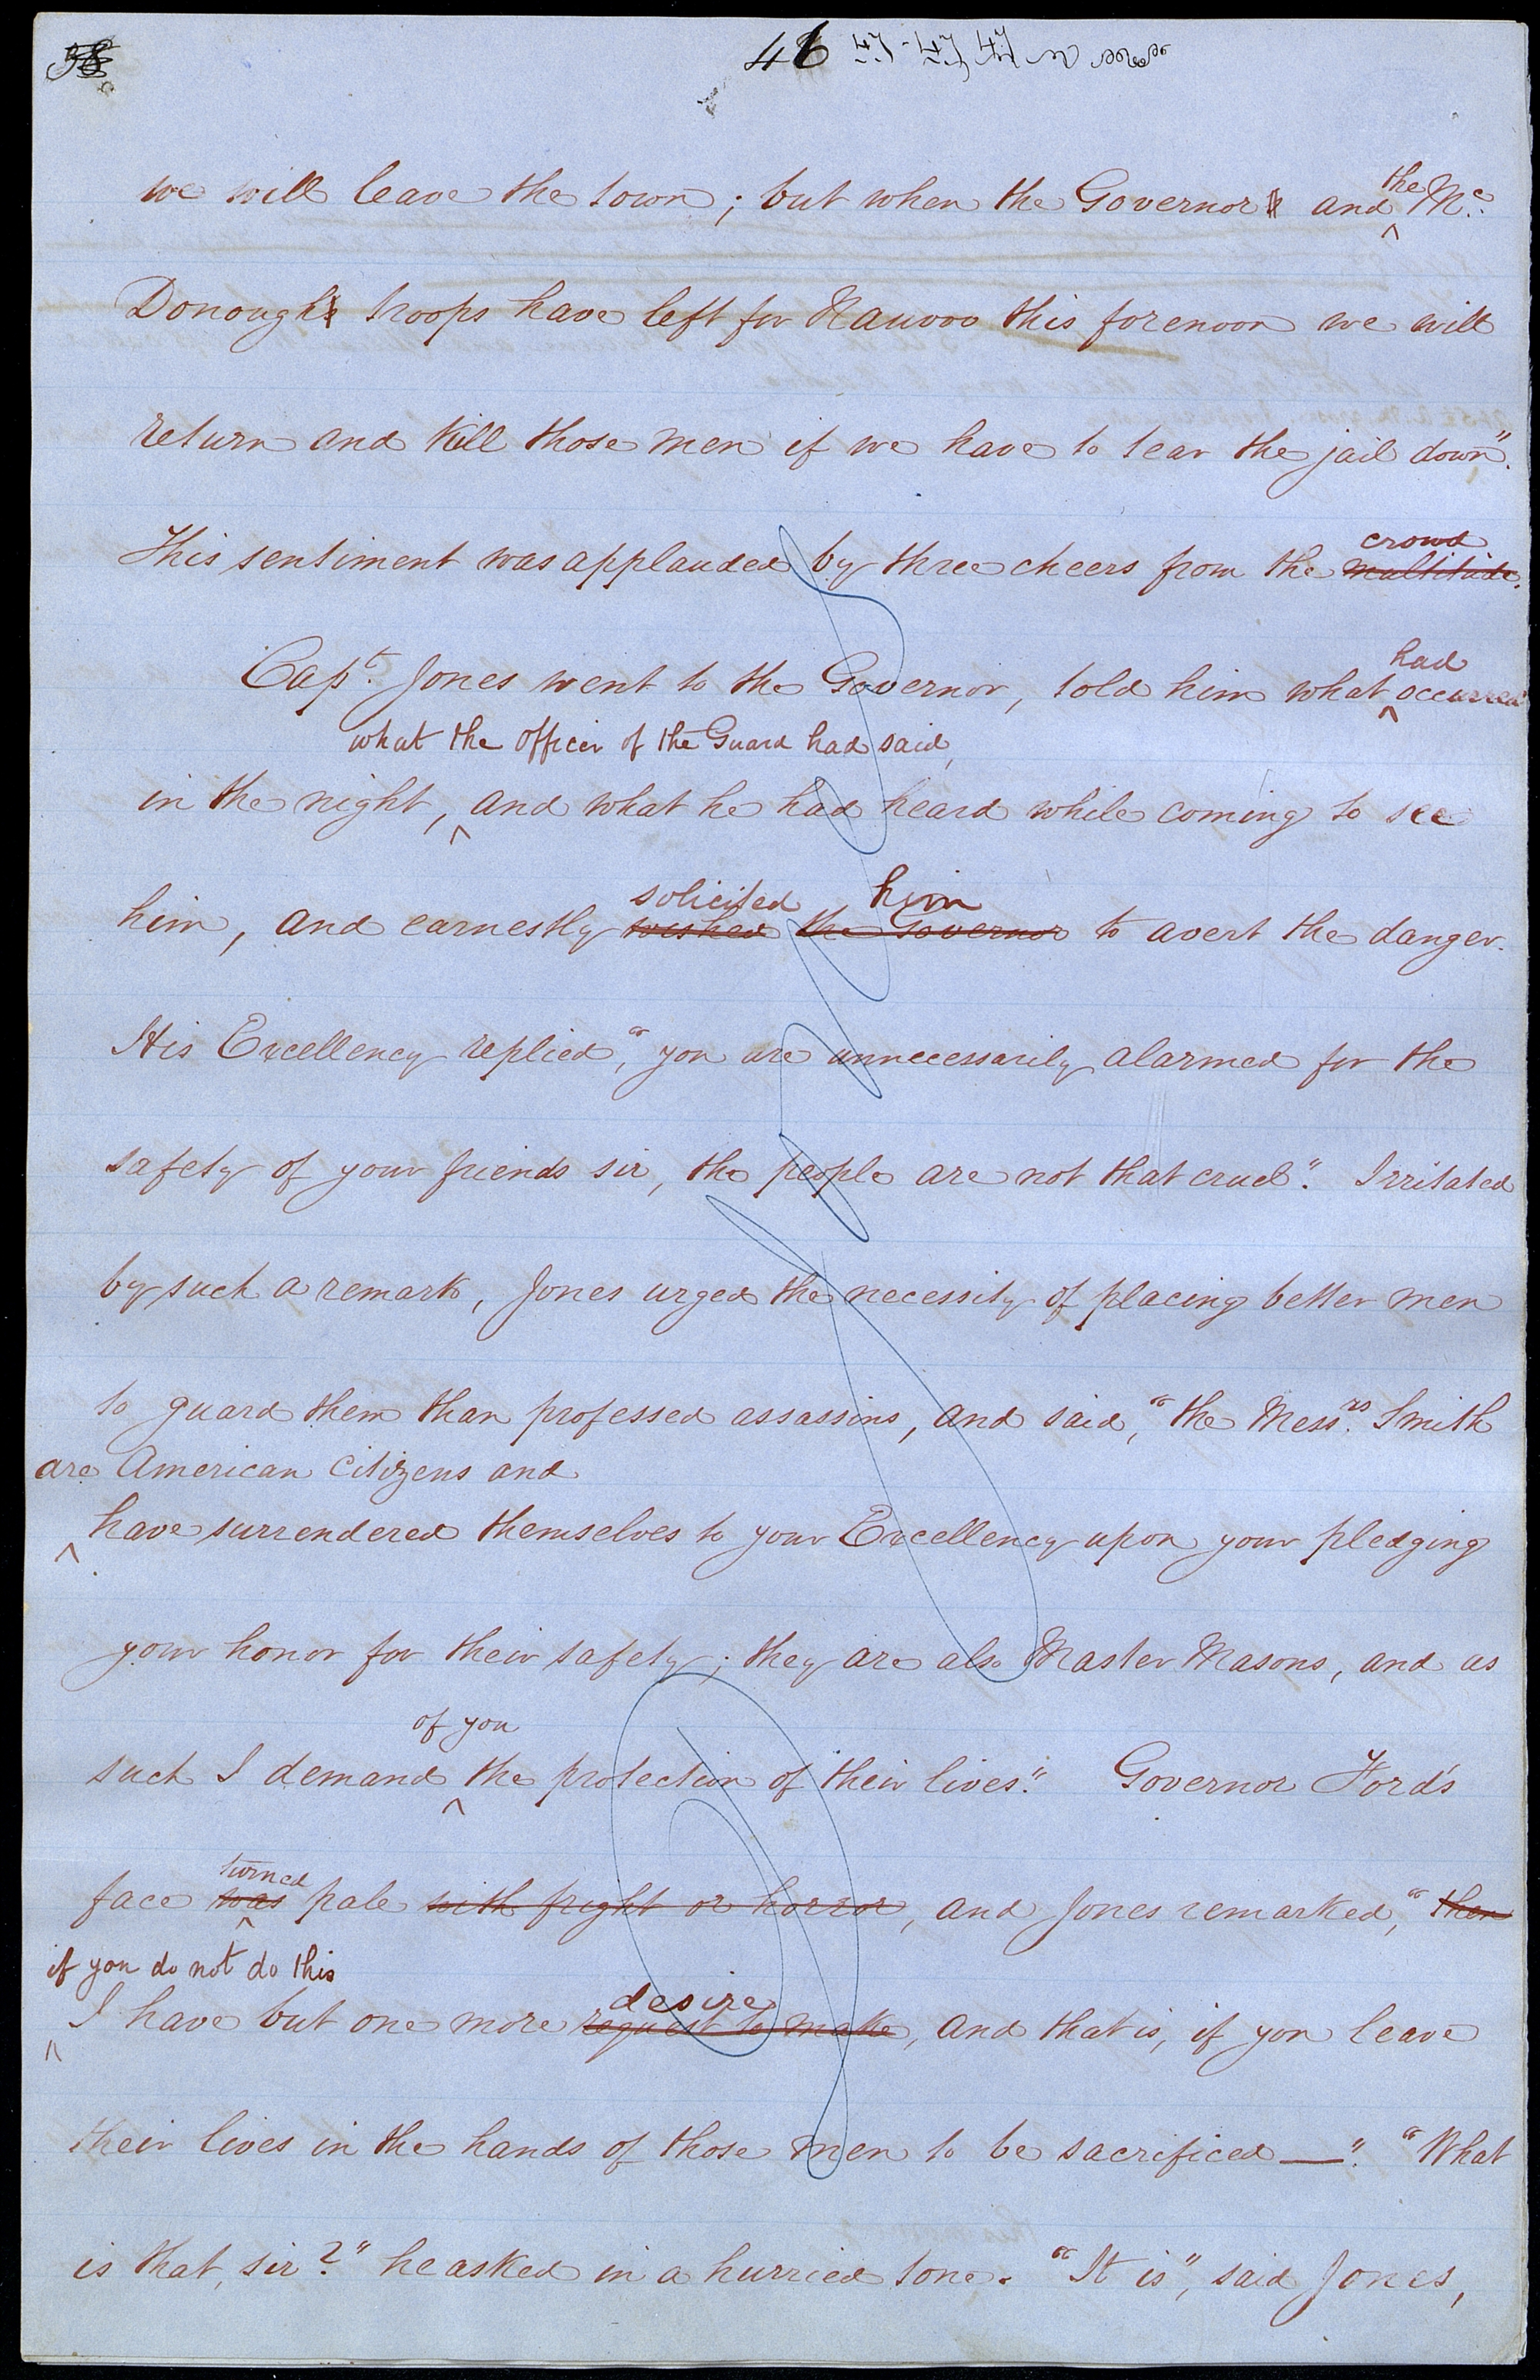 46
we will leave the town; but when the Governor and the Mc.
Donough troops have left for Nauvoo this forenoon we will
return and kill those men if we have to tear the jail down".
crowd
This sentiment was applauded by three cheers from the multitude.
had
Capt. Jones went to the Governor, told him what occurred
what the officer of the Guard had said,
in the night, and what he had heard while coming to see
solicited him
him, and earnestly wished the Governor to avert the danger.
His Excellency replied, "you are unnecessarily alarmed for the
safety of your friends sir, the people are not that cruel." Irritated
by such a remark, Jones urged the necessity of placing better men
to guard them than professed assassins, and said, "the Messrs. Smith
are American Citizens and
have surrendered themselves to your Excellency upon your pledging
your honor for their safety; they are also Master Masons, and as
of you
such I demand the protection of their lives." Governor Ford's
turned
face was pale with fright or horror, and Jones remarked, "then
if you do not do this
desire
I have but one more request to make, and that is, if you leave
their lives in the hands of those men to be sacrificed —". "What
is that, sir?" he asked in a hurried tone. "It is", said Jones,